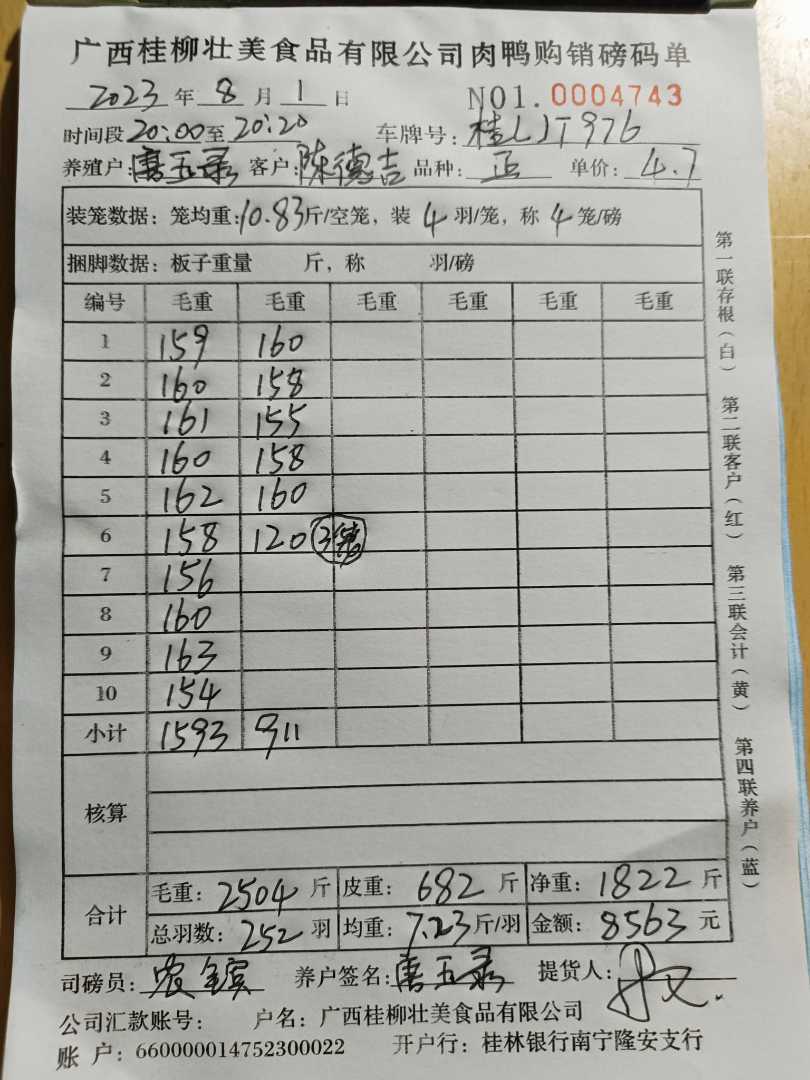 广西桂柳壮美食品有限公司肉鸭购销磅码单
2023年8月1日 NO1.0004743
时间段20:00至20:20 车牌号:桂LJT976
养殖户:唐五录 客户:陈德吉 品种:正 单价:4.7
装笼数据:笼均重:10.83斤/空笼,装4羽/笼,称4笼/磅
捆脚数据:板子重量 斤,称 羽/磅
编号 毛重 毛重 毛重 毛重 毛重 毛重
1 159 160
2 160 158
3 161 155
4 160 158
5 162 160
6 158 120 3笼
7 156
8 160
9 163
10 154
小计 1593 911
核算
合计
毛重:2504斤 皮重:682斤 净重:1822斤
总羽数:252羽 均重:7.23斤/羽 金额:8563元
司磅员:农 养户签名:唐五录 提货人:
公司汇款账号: 户名:广西桂柳壮美食品有限公司
账 户:660000014752300022 开户行:桂林银行南宁隆安支行
第一联存根(白) 第二联客户(红) 第三联会计(黄) 第四联养户(蓝)